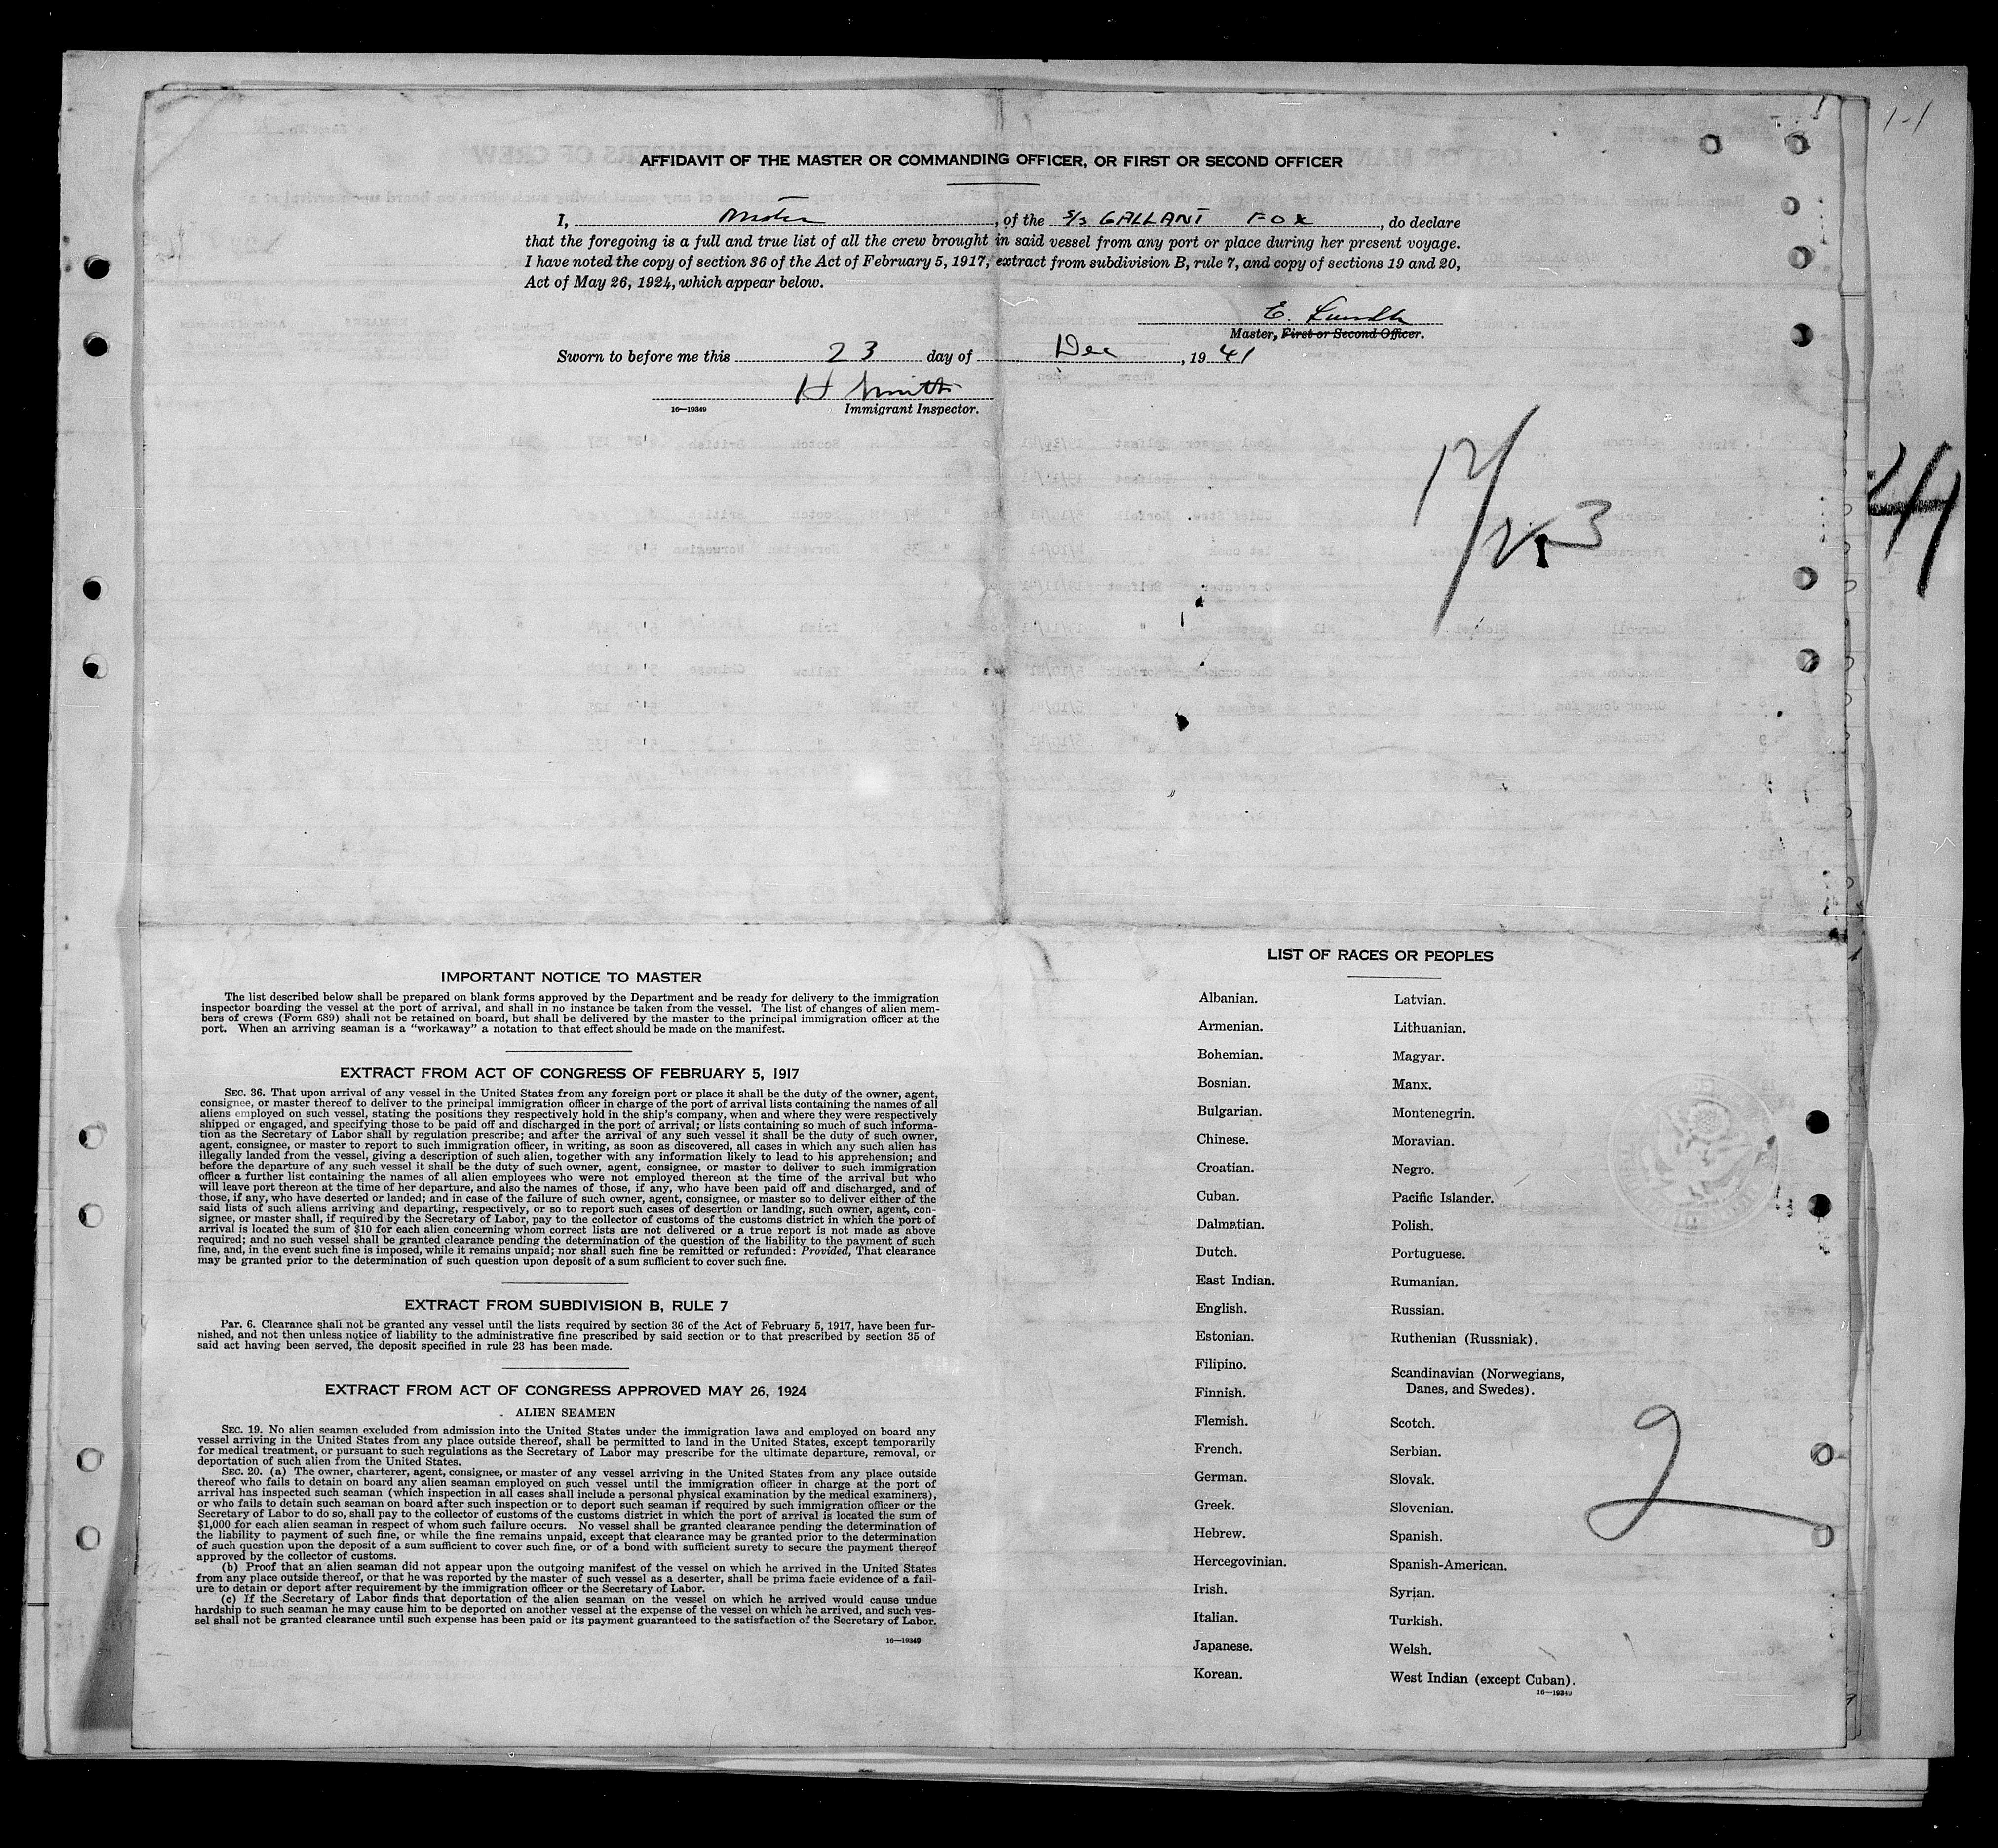 AFFIDAVIT OF THE MASTER OR COMMANDING OFFICER, OR FIRST OR SECOND OFFICER
I, Master, of the S/S GALLANT FOX, do declare
that the foregoing is a full and true list of all the crew brought in said vessel from any port or place during her present voyage.
I have noted the copy of section 36 of the Act of February 5, 1917, extract from subdivision B, rule 7, and copy of sections 19 and 20,
Act of May 26, 1924, which appear below.
E. Lundh
Master, First or Second Officer.
Sworn to before me this 23 day of Dec, 1941
H Smith
16—19349 Immigrant Inspector.
12/23
24
1-1
IMPORTANT NOTICE TO MASTER
The list described below shall be prepared on blank forms approved by the Department and be ready for delivery to the immigration
inspector boarding the vessel at the port of arrival, and shall in no instance be taken from the vessel. The list of changes of alien mem-
bers of crews (Form 689) shall not be retained on board, but shall be delivered by the master to the principal immigration officer at the
port. When an arriving seaman is a “workaway” a notation to that effect should be made on the manifest.
EXTRACT FROM ACT OF CONGRESS OF FEBRUARY 5, 1917
SEC. 36. That upon arrival of any vessel in the United States from any foreign port or place it shall be the duty of the owner, agent,
consignee, or master thereof to deliver to the principal immigration officer in charge of the port of arrival lists containing the names of all
aliens employed on such vessel, stating the positions they respectively hold in the ship's company, when and where they were respectively
shipped or engaged, and specifying those to be paid off and discharged in the port of arrival; or lists containing so much of such informa-
tion as the Secretary of Labor shall by regulation prescribe; and after the arrival of any such vessel it shall be the duty of such owner,
agent, consignee, or master to report to such immigration officer, in writing, as soon as discovered, all cases in which any such alien has
illegally landed from the vessel, giving a description of such alien, together with any information likely to lead to his apprehension; and
before the departure of any such vessel it shall be the duty of such owner, agent, consignee, or master to deliver to such immigration
officer a further list containing the names of all alien employees who were not employed thereon at the time of the arrival but who
will leave port thereon at the time of her departure, and also the names of those, if any, who have been paid off and discharged, and of
those, if any, who have deserted or landed; and in case of the failure of such owner, agent, consignee, or master so to deliver either of the
said lists of such aliens arriving and departing, respectively, or so to report such cases of desertion or landing, such owner, agent, con-
signee, or master shall, if required by the Secretary of Labor, pay to the collector of customs of the customs district in which the port of
arrival is located the sum of $10 for each alien concerning whom correct lists are not delivered or a true report is not made as above
required; and no such vessel shall be granted clearance pending the determination of the question of the liability to the payment of such
fine, and, in the event such fine is imposed, while it remains unpaid; nor shall such fine be remitted or refunded: Provided, That clearance
may be granted prior to the determination of such question upon deposit of a sum sufficient to cover such fine.
EXTRACT FROM SUBDIVISION B, RULE 7
Par. 6. Clearance shall not be granted any vessel until the lists required by section 36 of the Act of February 5, 1917, have been fur-
nished, and not then unless notice of liability to the administrative fine prescribed by said section or to that prescribed by section 35 of
said act having been served, the deposit specified in rule 23 has been made.
EXTRACT FROM ACT OF CONGRESS APPROVED MAY 26, 1924
ALIEN SEAMEN
SEC. 19. No alien seaman excluded from admission into the United States under the immigration laws and employed on board any
vessel arriving in the United States from any place outside thereof, shall be permitted to land in the United States, except temporarily
for medical treatment, or pursuant to such regulations as the Secretary of Labor may prescribe for the ultimate departure, removal, or
deportation of such alien from the United States.
SEC. 20. (a) The owner, charterer, agent, consignee, or master of any vessel arriving in the United States from any place outside
thereof who fails to detain on board any alien seaman employed on such vessel until the immigration officer in charge at the port of
arrival has inspected such seaman (which inspection in all cases shall include a personal physical examination by the medical examiners),
or who fails to detain such seaman on board after such inspection or to deport such seaman if required by such immigration officer or the
Secretary of Labor to do so, shall pay to the collector of customs of the customs district in which the port of arrival is located the sum of
$1,000 for each alien seaman in respect of whom such failure occurs. No vessel shall be granted clearance pending the determination of
the liability to payment of such fine, or while the fine remains unpaid, except that clearance may be granted prior to the determination
of such question upon the deposit of a sum sufficient to cover such fine, or of a bond with sufficient surety to secure the payment thereof
approved by the collector of customs.
(b) Proof that an alien seaman did not appear upon the outgoing manifest of the vessel on which he arrived in the United States
from any place outside thereof, or that he was reported by the master of such vessel as a deserter, shall be prima facie evidence of a fail-
ure to detain or deport after requirement by the immigration officer or the Secretary of Labor.
(c) If the Secretary of Labor finds that deportation of the alien seaman on the vessel on which he arrived would cause undue
hardship to such seaman he may cause him to be deported on another vessel at the expense of the vessel on which he arrived, and such ves-
sel shall not be granted clearance until such expense has been paid or its payment guaranteed to the satisfaction of the Secretary of Labor.
16—19349
LIST OF RACES OR PEOPLES
Albanian.
Armenian.
Bohemian.
Bosnian.
Bulgarian.
Chinese.
Croatian.
Cuban.
Dalmatian.
Dutch.
East Indian.
English.
Estonian.
Filipino.
Finnish.
Flemish.
French.
German.
Greek.
Hebrew.
Hercegovinian.
Irish.
Italian.
Japanese.
Korean.
Latvian.
Lithuanian.
Magyar.
Manx.
Montenegrin.
Moravian.
Negro.
Pacific Islander.
Polish.
Portuguese.
Rumanian.
Russian.
Ruthenian (Russniak).
Scandinavian (Norwegians,
Danes, and Swedes).
Scotch.
Serbian.
Slovak.
Slovenian.
Spanish.
Spanish-American.
Syrian.
Turkish.
Welsh.
West Indian (except Cuban).
16—19349
2